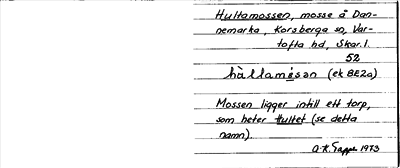 Hultamossen, mosse å Dan-
nemarka, Korsberga sn, Var-
tofta hd, Skar. l.
52
hàllamésən (ek BE2a)
Mossen ligger intill ett torp,
som heter Hultet (se detta
namn).
1973